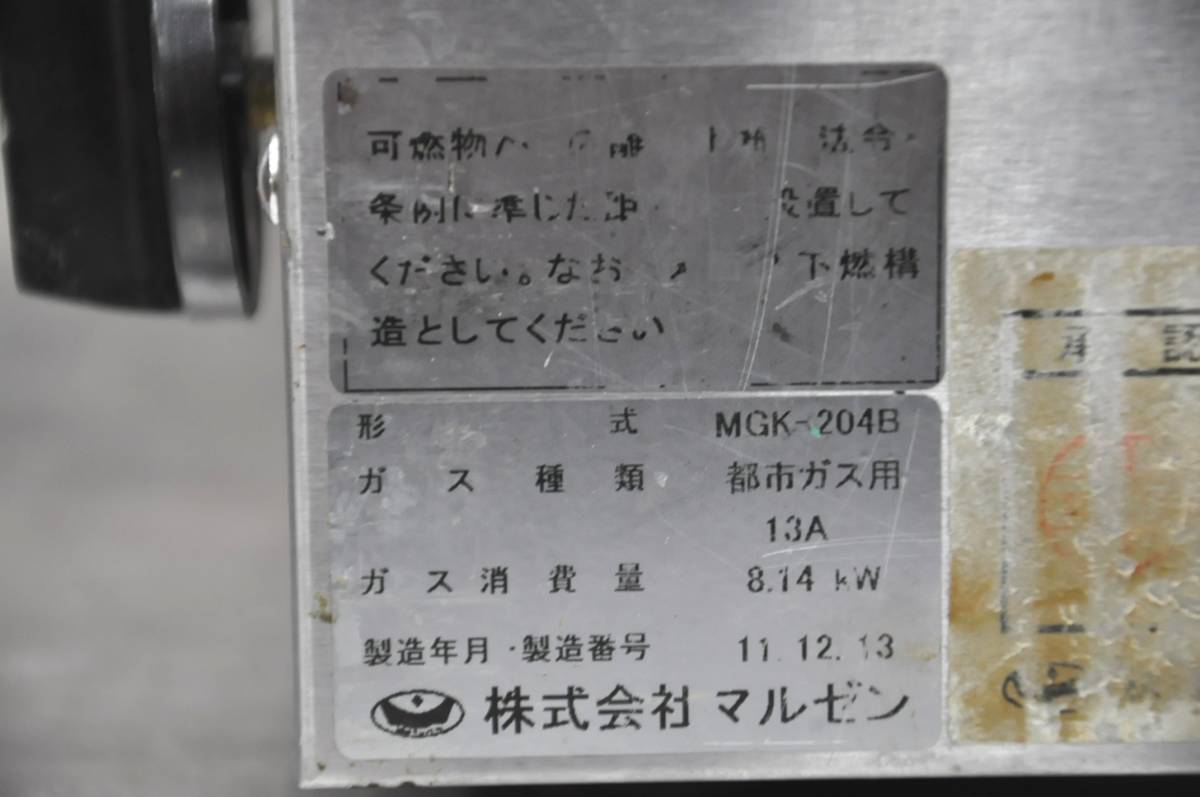 可燃物
法令・
条例に準じた 設置して
ください。なお 下燃構
造としてください
形式 MGK-204B
ガス種類 都市ガス用
13A
ガス消費量 8.14 kW
製造年月・製造番号 11.12.13
株式会社 マルゼン
承認